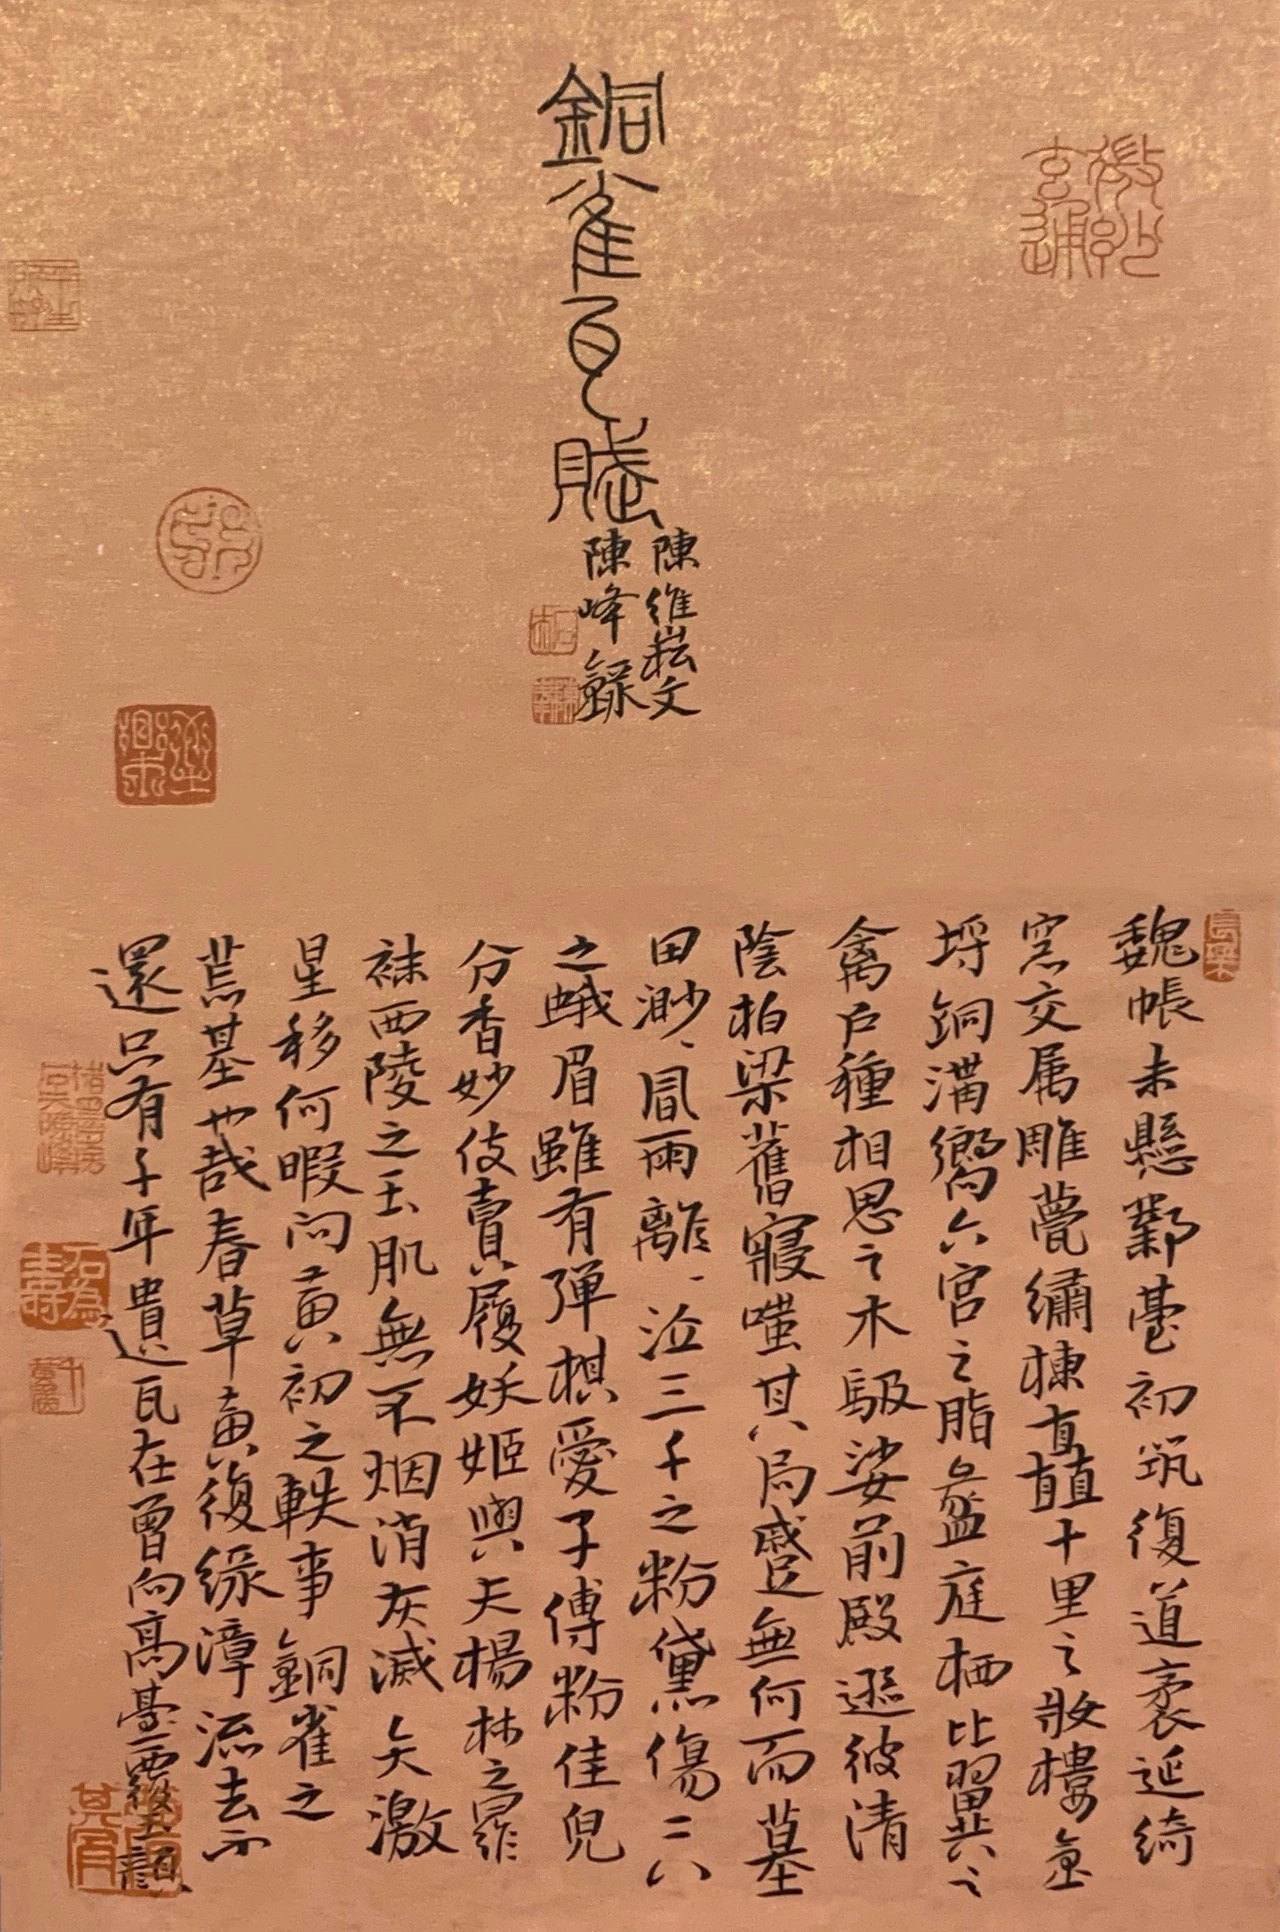 銅雀瓦賦
陳維崧文
陳峰錄
魏帳未懸鄴臺初筑復道袤延綺
窓交属雕甍繡棟矗十里之妝樓金
埒銅溝響六宮之脂盝庭栖比翼之
禽戶種相思之木馺娑前殿遜彼清
陰柏梁舊寢嗤其局蹙無何而墓
田渺、風雨離、泣三千之粉黛傷二八
之蛾眉雖有彈棋愛子傅粉佳兒
分香妙伎賣履妖姬與夫楊林之羅
襪西陵之玉肌無不烟消灰滅矢激
星移何暇问黄初之軼事銅雀之
荒基也哉春草黄復緑漳流去不
還只有千年遺瓦在曾向高臺覆玉顏
長樂